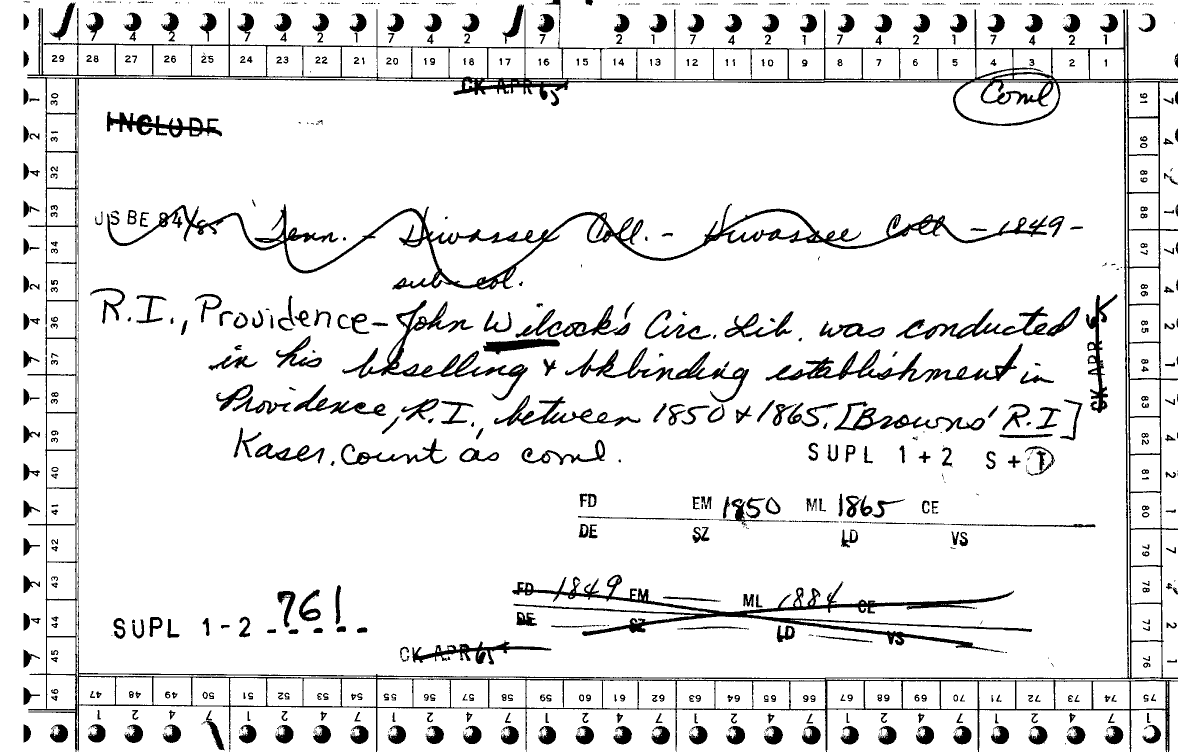 7 4 2 1 7 4 2 1 7 4 2 1 7 2 1 7 4 2 1 7 4 2 1 7 4 2 1
29 28 27 26 25 24 23 22 21 20 19 18 17 16 15 14 13 12 11 10 9 8 7 6 5 4 3 2 1
CK APR 65
Coml
INCLUDE
USBE 84/85 Tenn. - Hiwassee Coll. - Hiwassee Coll - 1849 -
sub col.
R.I., Providence - John Wilcock's Circ. Lib. was conducted
in his bkselling & bkbinding establishment in
Providence, R.I., between 1850 & 1865. [Browns' R.I]
Kaser. Count as coml.
SUPL 1+2 S+T
FD EM 1850 ML 1865 CE
DE SZ LD VS
FD 1849 EM ML 1884 CE
DE SZ LD VS
SUPL 1-2 761
CK APR 65
CK APR 65
30 31 32 33 34 35 36 37 38 39 40 41 42 43 44 45 46
91 90 89 88 87 86 85 84 83 82 81 80 79 78 77 76
47 48 49 50 51 52 53 54 55 56 57 58 59 60 61 62 63 64 65 66 67 68 69 70 71 72 73 74 75
1 2 4 7 1 2 4 7 1 2 4 7 1 2 4 7 1 2 4 7 1 2 4 7 1 2 4 7